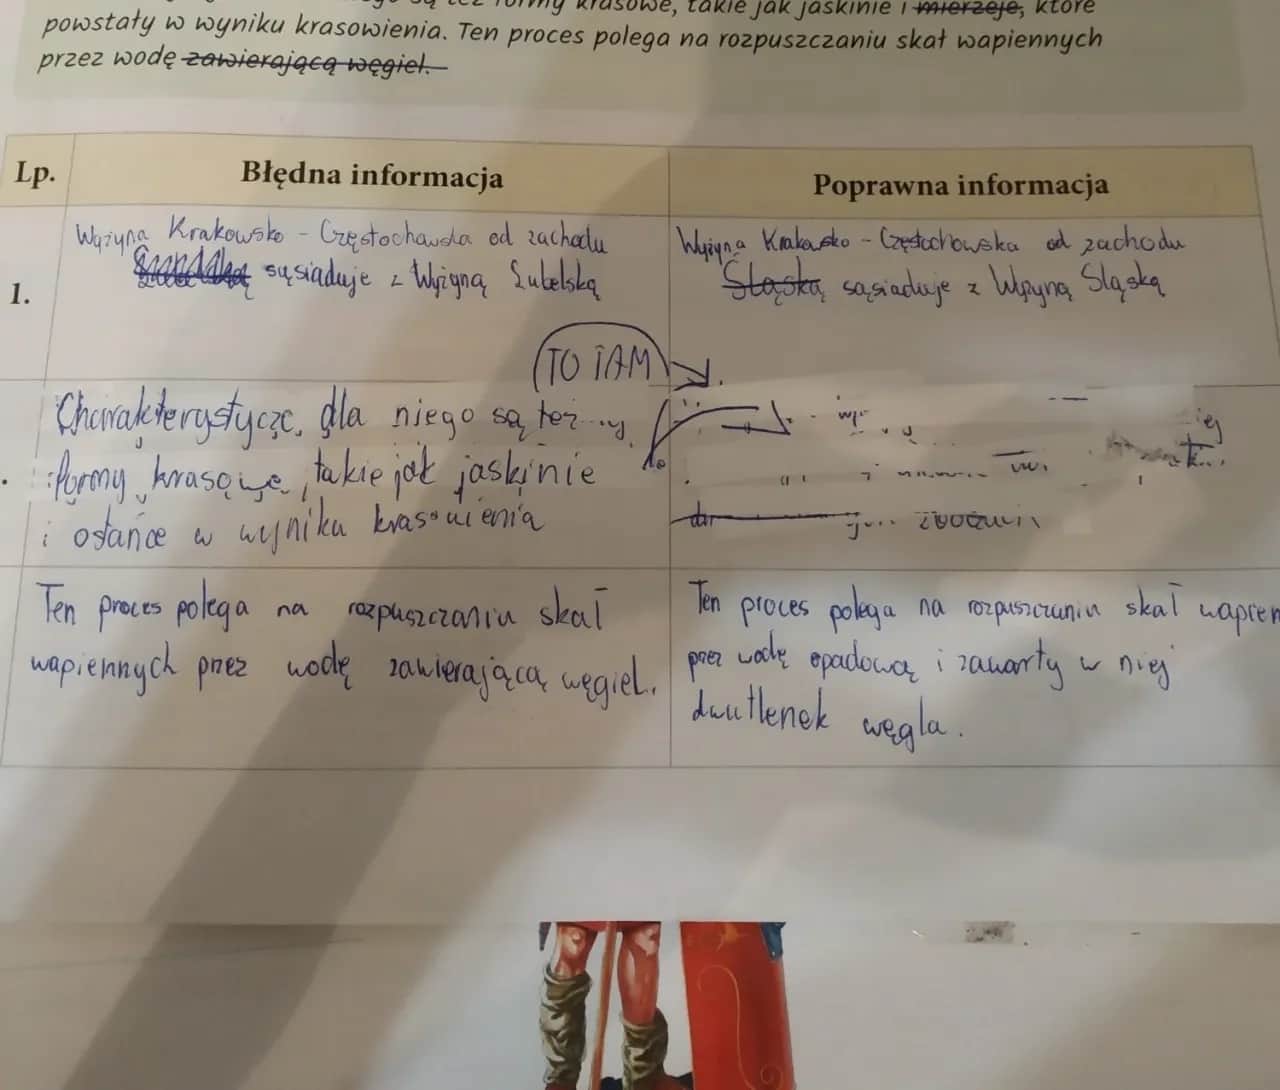 formy krasowe, takie jak jaskinie i mierzeje, które
powstały w wyniku krasowienia. Ten proces polega na rozpuszczaniu skał wapiennych
przez wodę zawierającą węgiel.
Lp. Błędna informacja Poprawna informacja
1.
Wyżyna Krakowsko - Częstochowska od zachodu
sąsiaduje z Wyżyną Lubelską
Wyżyna Krakowsko - Częstochowska od zachodu
Śląską sąsiaduje z Wyżyną Śląską
TO TAM
dla niego są też
formy krasowe, takie jak jaskinie
i ostańce w wyniku krasowienia
Ten proces polega na rozpuszczaniu skał
wapiennych przez wodę zawierającą węgiel.
Ten proces polega na rozpuszczaniu skał wapien
przez wodę opadową i zawarty w niej
dwutlenek węgla.